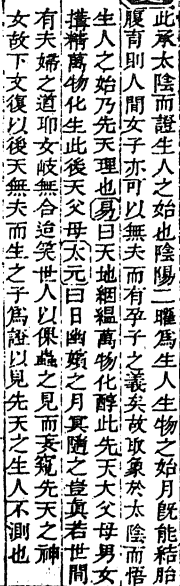 此承太陰而證生人之始也陰陽二曜爲生人生物之始月旣能結胎
腹育則人間女子亦可以無夫而有孕子之義矣故取象於太陰而悟
生人之始乃先天理也易曰天地絪縕萬物化醇此先天大父母男女
搆精萬物化生此後天父母太元曰日幽嬪之月冥隨之豈眞若世間
有夫婦之道耶女岐無合迨笑世人以倮蟲之見而妄窺先天之神
女故下文復以後天無夫而生之子爲證以見先天之生人不測也